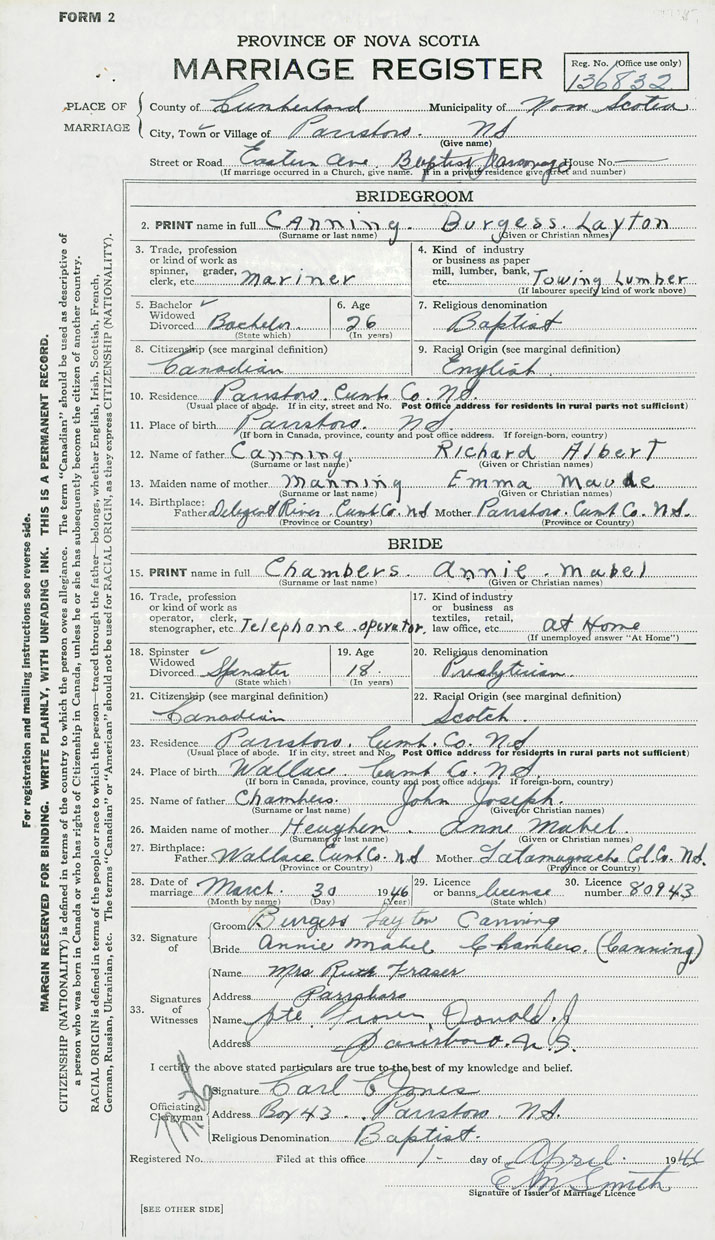 FORM 2
PROVINCE OF NOVA SCOTIA
MARRIAGE REGISTER
Reg. No. (Office use only)
136832
PLACE OF MARRIAGE
County of Cumberland Municipality of Nova Scotia
City, Town or Village of Parrsboro. NS
(Give name)
Street or Road Eastern Ave. Baptist Parsonage House No.
(If marriage occurred in a Church, give name. If in a private residence give street and number)
BRIDEGROOM
2. PRINT name in full Canning. Burgess. Layton
(Surname or last name) (Given or Christian names)
3. Trade, profession or kind of work as spinner, grader, clerk, etc. Mariner
4. Kind of industry or business as paper mill, lumber, bank, etc. Towing Lumber
(If labourer specify kind of work above)
5. Bachelor Widowed Divorced Bachelor.
(State which)
6. Age 26
(In years)
7. Religious denomination Baptist
8. Citizenship (see marginal definition) Canadian
9. Racial Origin (see marginal definition) English.
10. Residence Parrsboro. Cumb. Co. NS.
(Usual place of abode. If in city, street and No. Post Office address for residents in rural parts not sufficient)
11. Place of birth Parrsboro. NS.
(If born in Canada, province, county and post office address. If foreign-born, country)
12. Name of father Canning. Richard Albert
(Surname or last name) (Given or Christian names)
13. Maiden name of mother Manning Emma Maude
(Surname or last name) (Given or Christian names)
14. Birthplace: Father Deligent River. Cumb Co. NS Mother Parrsboro. Cumb Co. NS.
(Province or Country) (Province or Country)
BRIDE
15. PRINT name in full Chambers. Annie. Mabel
(Surname or last name) (Given or Christian names)
16. Trade, profession or kind of work as operator, clerk, stenographer, etc. Telephone operator.
17. Kind of industry or business as textiles, retail, law office, etc. at Home
(If unemployed answer "At Home")
18. Spinster Widowed Divorced Spinster
(State which)
19. Age 18.
(In years)
20. Religious denomination Presbyterian
21. Citizenship (see marginal definition) Canadian
22. Racial Origin (see marginal definition) Scotch.
23. Residence Parrsboro. Cumb. Co. NS
(Usual place of abode. If in city, street and No. Post Office address for residents in rural parts not sufficient)
24. Place of birth Wallace. Cumb Co. NS.
(If born in Canada, province, county and post office address. If foreign-born, country)
25. Name of father Chambers. John Joseph.
(Surname or last name) (Given or Christian names)
26. Maiden name of mother Heughen. Anne Mabel.
(Surname or last name) (Given or Christian names)
27. Birthplace: Father Wallace Cumb Co. NS Mother Tatamagouche Col. Co. NS.
(Province or Country) (Province or Country)
28. Date of marriage March. 30 1946
(Month by name) (Day) (Year)
29. Licence or banns license
(State which)
30. Licence number 80943
32. Signature of
Groom Burgess Layton Canning
Bride Annie Mabel Chambers. (Canning)
33. Signatures of Witnesses
Name Mrs Ruth Fraser
Address Parrsboro
Name Pte. Donald. J
Address Parrsboro. N.S.
I certify the above stated particulars are true to the best of my knowledge and belief.
Officiating Clergyman
Signature Carl C Jones
Address Box 43. Parrsboro NS.
Religious Denomination Baptist.
Registered No. Filed at this office 1- day of April. 1946
E M Smith
Signature of Issuer of Marriage Licence
[SEE OTHER SIDE]
For registration and mailing instructions see reverse side.
MARGIN RESERVED FOR BINDING. WRITE PLAINLY, WITH UNFADING INK. THIS IS A PERMANENT RECORD.
CITIZENSHIP (NATIONALITY) is defined in terms of the country to which the person owes allegiance. The term "Canadian" should be used as descriptive of
a person who was born in Canada or who has rights of Citizenship in Canada, unless he or she has subsequently become the citizen of another country.
RACIAL ORIGIN is defined in terms of the people or race to which the person—traced through the father—belongs, whether English, Irish, Scottish, French,
German, Russian, Ukrainian, etc. The terms "Canadian" or "American" should not be used for RACIAL ORIGIN, as they express CITIZENSHIP (NATIONALITY).